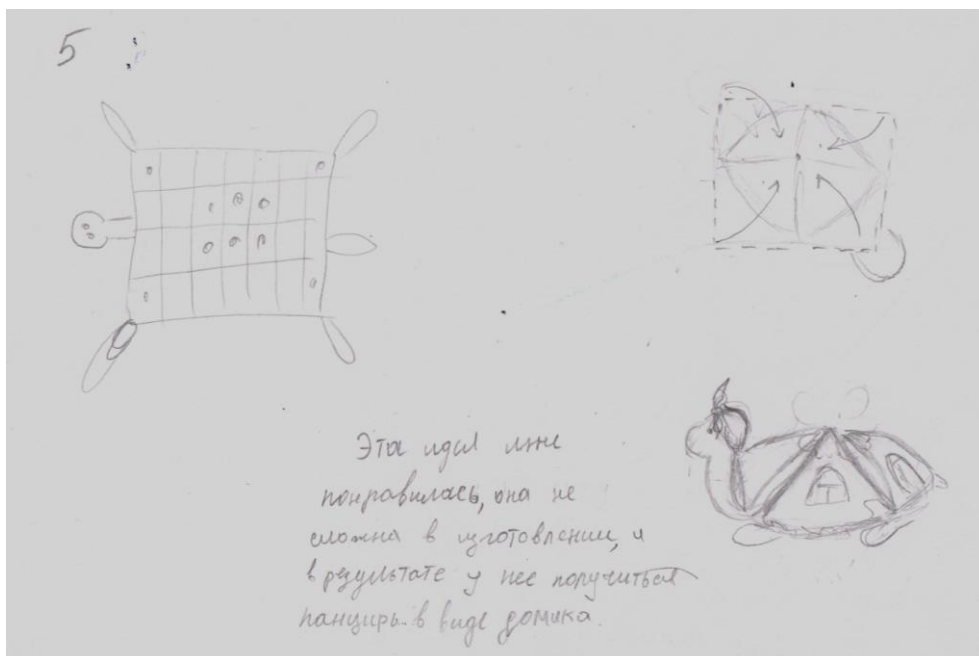 5
Эта идея мне
понравилась, она не
сложна в изготовлении, и
в результате у нее поручиться
панцирь в виде домика.